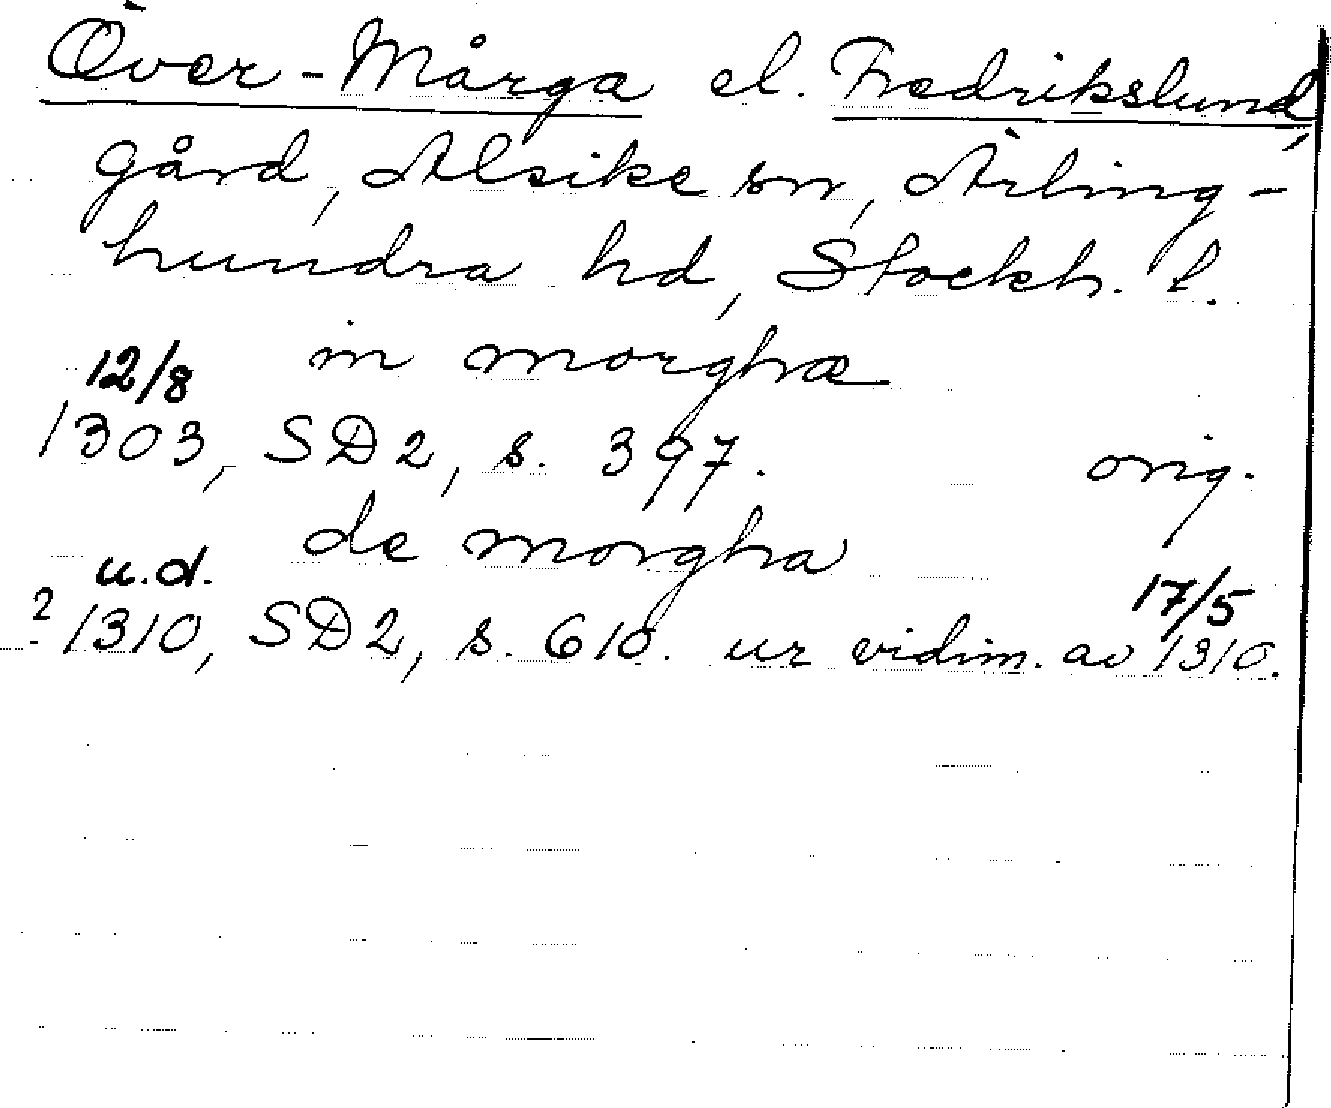 Över-Mårga el. Fredrikslund,
gård, Alsike sn, Ärling-
hundra hd, Stockh. l.
in morghæ
12/8
1303, SD2, s. 397. orig.
de morgha
u.d. 17/5
2 1310, SD2, s. 610. ur vidim. av 1310.